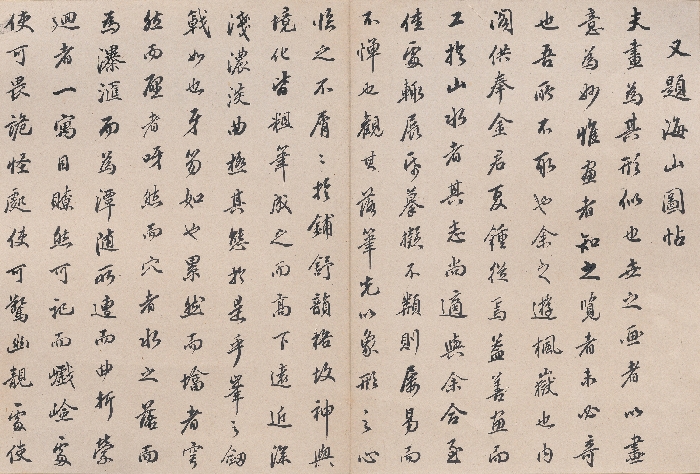 又題海山圖帖
夫畫爲其形似也世之画者以畫
意爲妙惟畫者知之覽者未必奇
也吾所不取也余之遊楓嶽也內
閣供奉金君夏鍾從焉盖善画而
工於山水者其志尚適與余合至
佳處輒展紙摹擬不類則屢易而
不憚也觀其落筆先以象形之心
悟之不屑〻於鋪舒韻格故神與
境化皆粗筆成之而高下遠近深
淺濃淡曲極其態於是乎峯之劒
戟如也牙笏如也累然而墖者穹
然而壓者呀然而穴者水之落而
爲瀑滙而爲潭隨所遭而曲折縈
廻者一寓目瞭然可記而巇嶮處
使可畏詭怪處使可驚幽靚處使